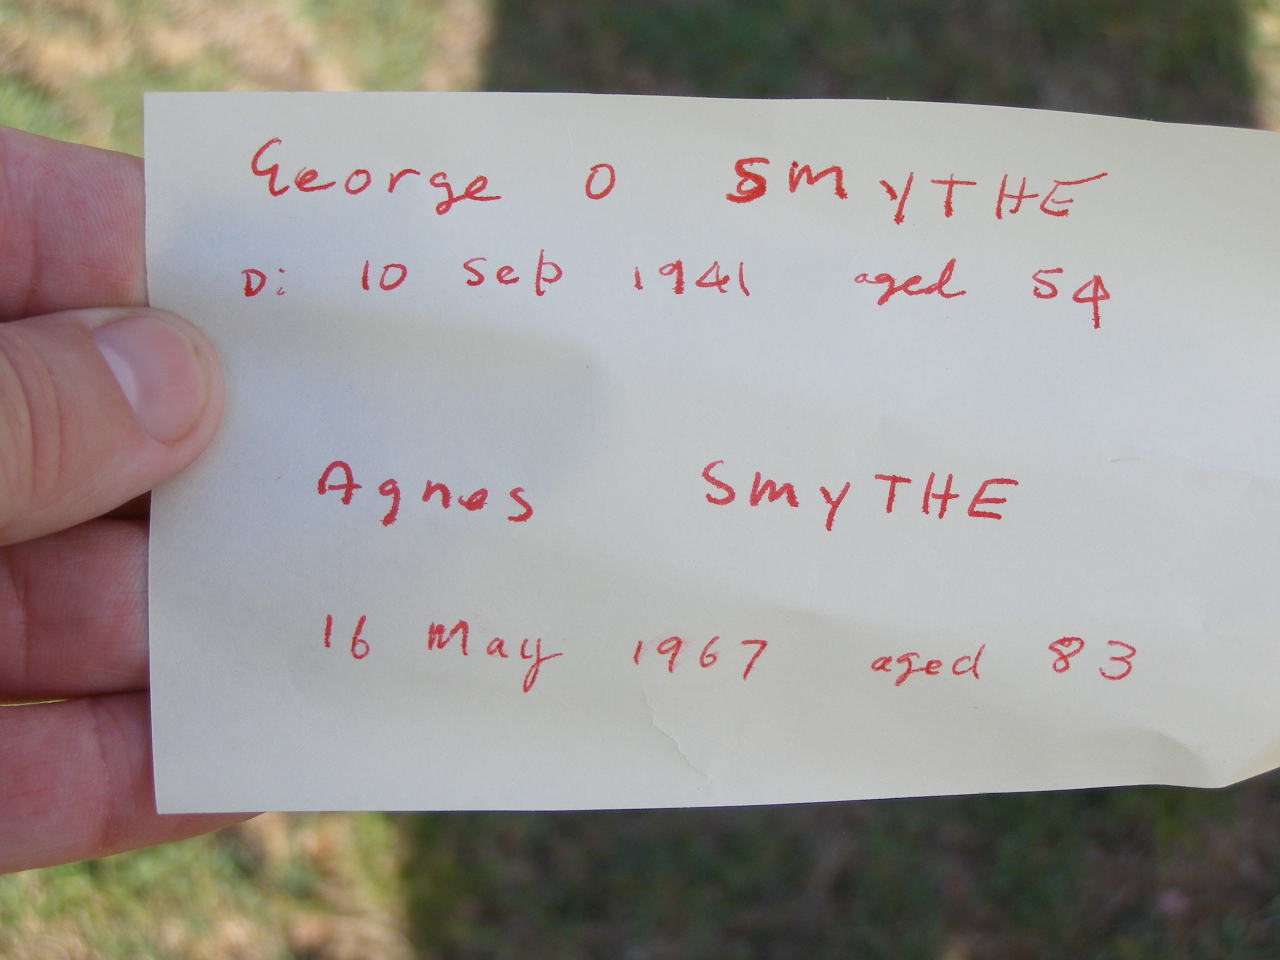 George O SMYTHE
D: 10 Sep 1941 aged 54
Agnes SMYTHE
16 May 1967 aged 83